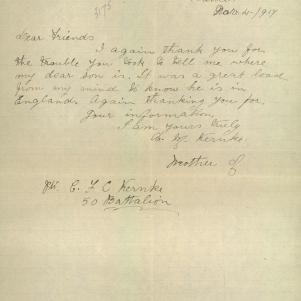 Dear Friends
I again thank you for
the trouble you took to tell me where
my dear son is. It was a great load
from my mind to know he is in
England. Again thanking you for
your information
I am yours truly
Kernke
Mother of
Pte. C. F. C Kernke
50 Battalion